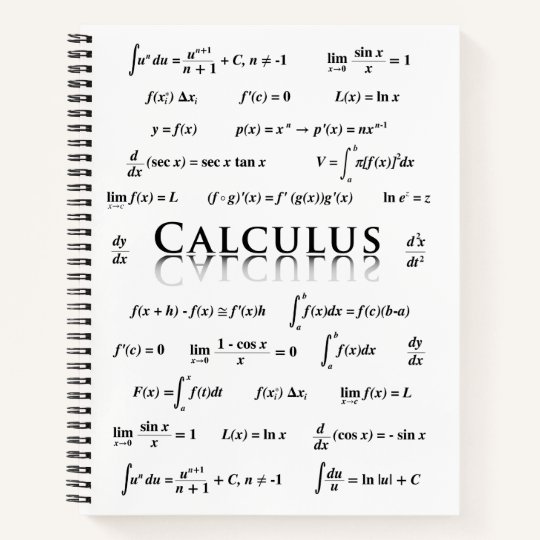 ∫uⁿ du = uⁿ⁺¹/n + 1 + C, n ≠ -1    lim x→0 sin x/x = 1
f(xᵢ*) Δxᵢ    f'(c) = 0    L(x) = ln x
y = f(x)    p(x) = x ⁿ → p'(x) = nxⁿ⁻¹
d/dx (sec x) = sec x tan x    V = ∫ₐᵇ π[f(x)]²dx
lim x→c f(x) = L    (f ∘ g)'(x) = f' (g(x))g'(x)    ln eᶻ = z
dy/dx    CALCULUS    d²x/dt²
f(x + h) - f(x) ≅ f'(x)h    ∫ₐᵇ f(x)dx = f(c)(b-a)
f'(c) = 0    lim x→0 1 - cos x/x = 0    ∫ₐᵇ f(x)dx    dy/dx
F(x) = ∫ₐˣ f(t)dt    f(xᵢ*) Δxᵢ    lim x→c f(x) = L
lim x→0 sin x/x = 1    L(x) = ln x    d/dx (cos x) = - sin x
∫uⁿ du = uⁿ⁺¹/n + 1 + C, n ≠ -1    ∫du/u = ln |u| + C